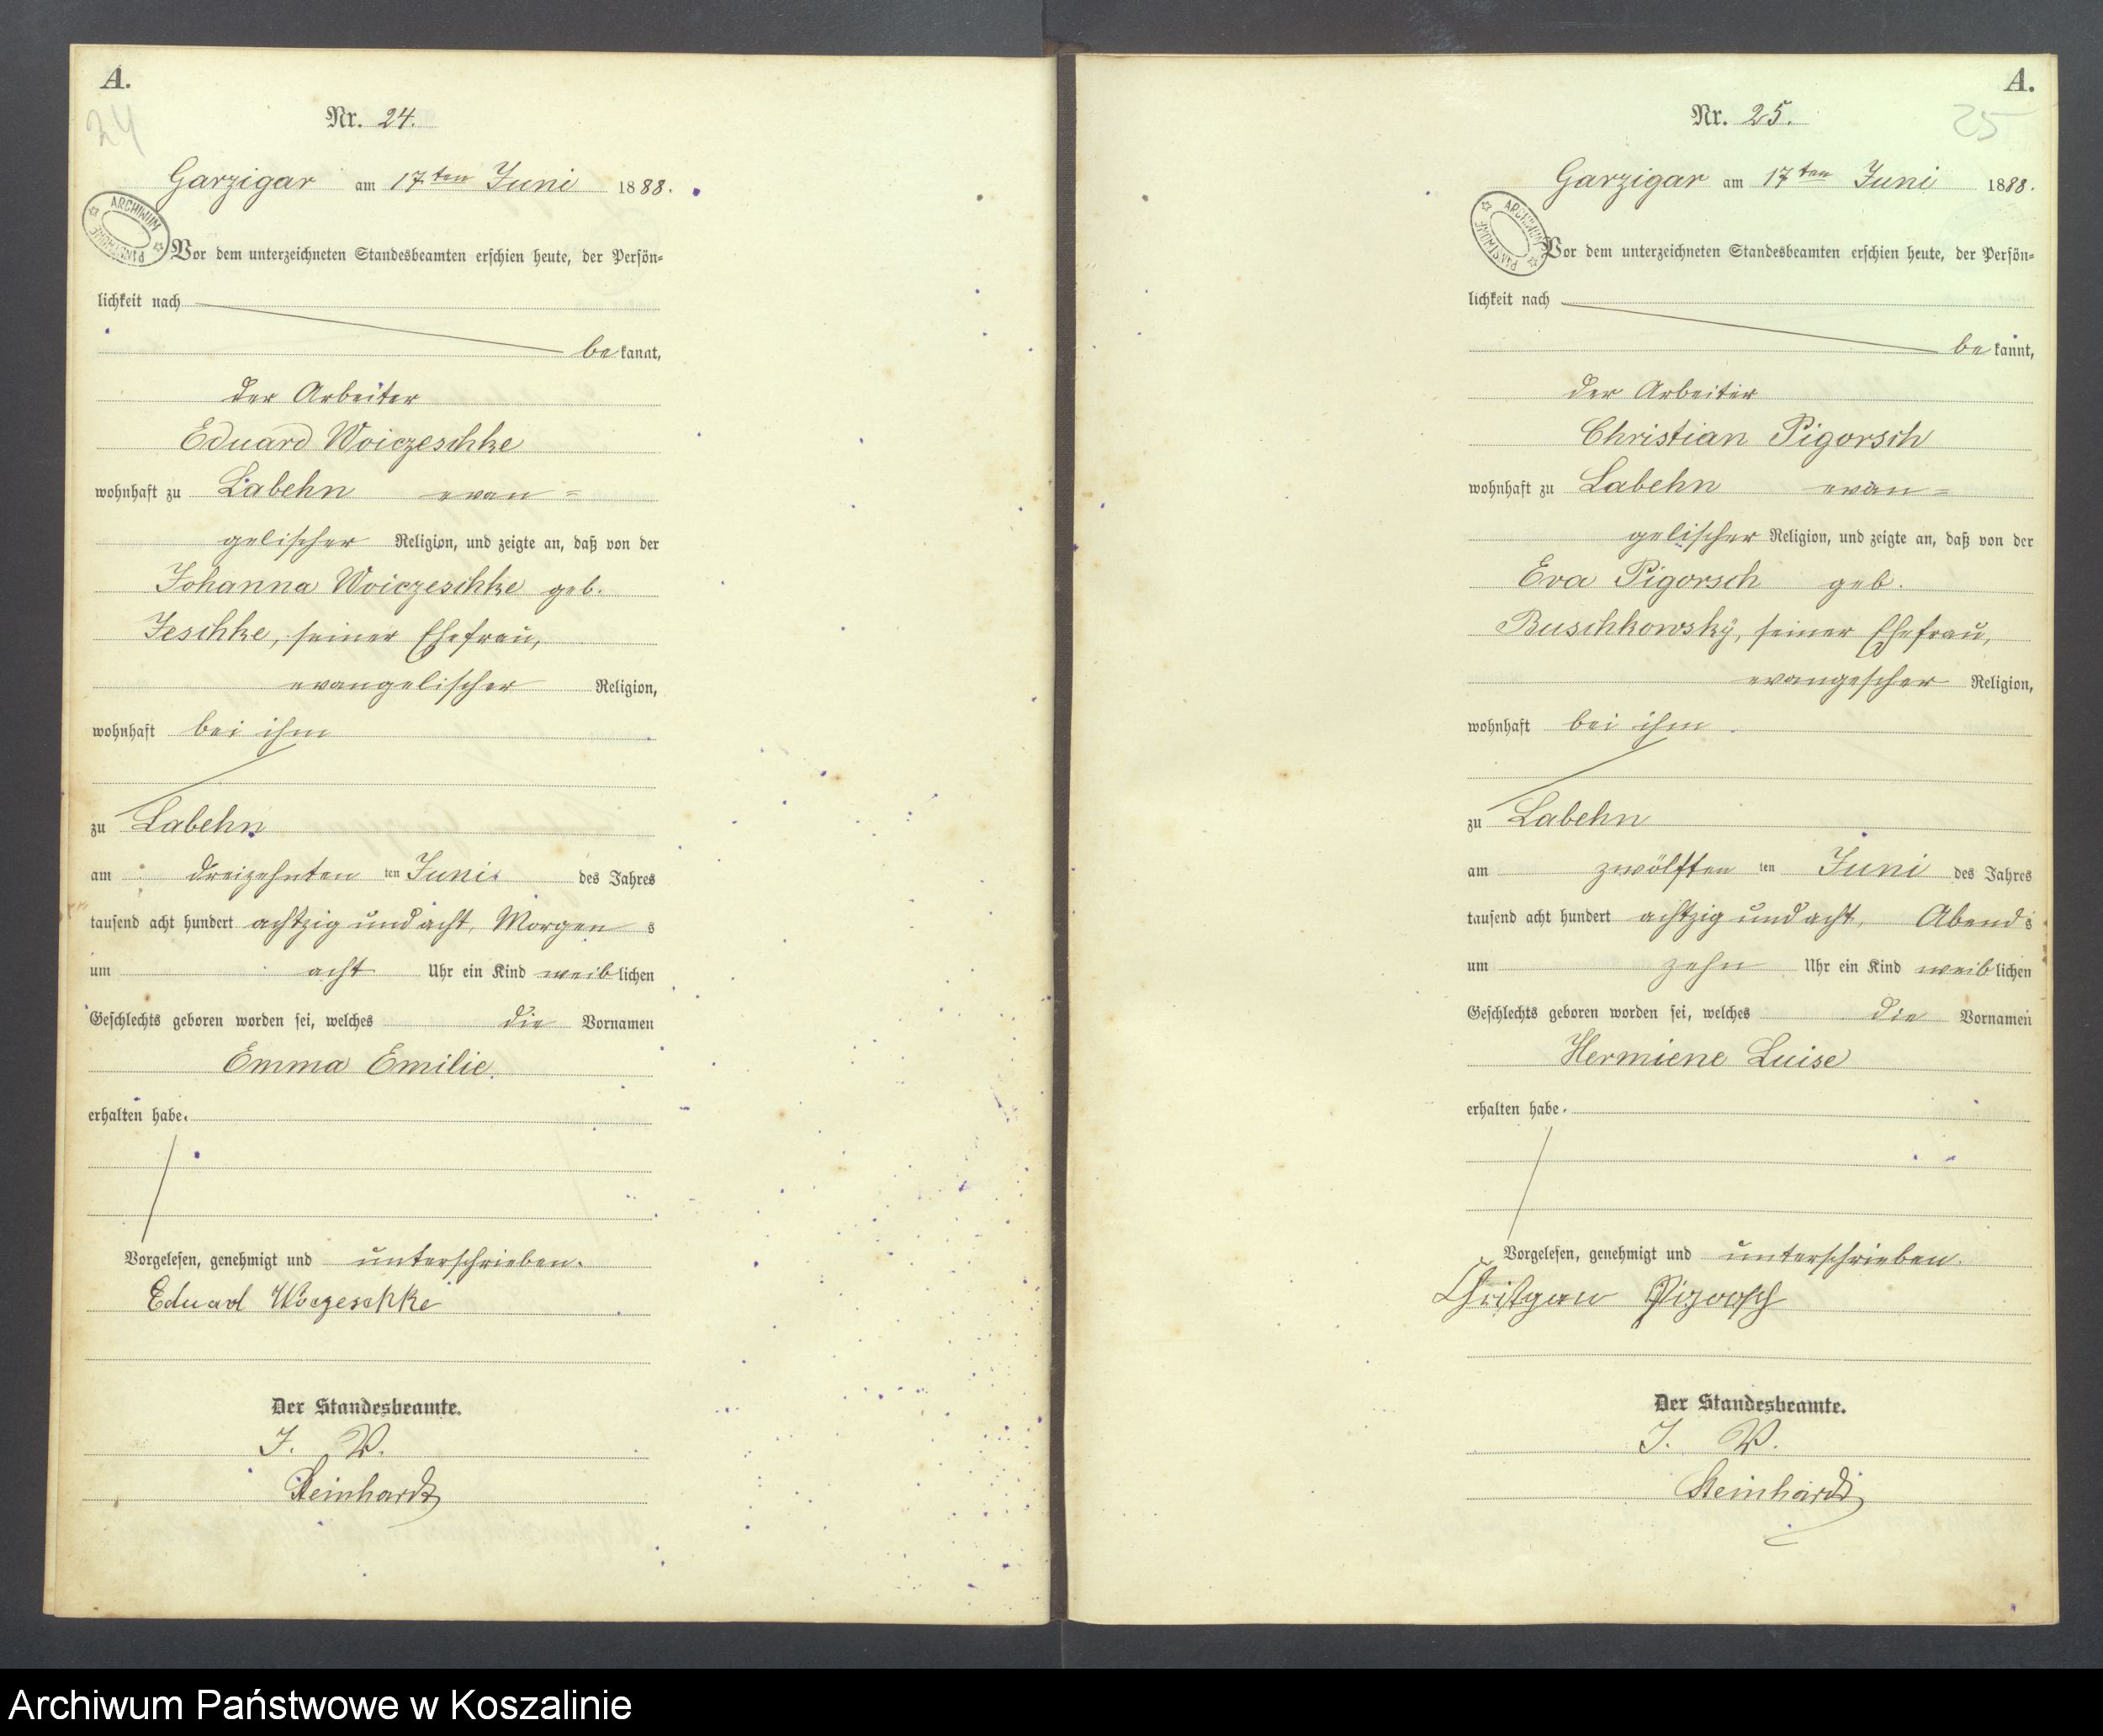 A.
24
Nr. 24.
Garzigar am 17ten Juni 1888.
ARCHIWUM PAŃSTWOWE
Vor dem unterzeichneten Standesbeamten erschien heute, der Persön-
lichkeit nach
bekannt,
der Arbeiter
Eduard Woiczeschke
wohnhaft zu Labehn evan=
gelischer Religion, und zeigte an, daß von der
Johanna Woiczeschke geb.
Jeschke, seiner Ehefrau,
evangelischer Religion,
wohnhaft bei ihm
zu Labehn
am dreizehnten ten Juni des Jahres
tausend acht hundert achtzig und acht, Morgens
um acht Uhr ein Kind weiblichen
Geschlechts geboren worden sei, welches die Vornamen
Emma Emilie
erhalten habe.
Vorgelesen, genehmigt und unterschrieben.
Eduard Woczeschke
Der Standesbeamte.
J. V.
Steinhardt
A.
25
Nr. 25.
Garzigar am 17ten Juni 1888.
ARCHIWUM PAŃSTWOWE
Vor dem unterzeichneten Standesbeamten erschien heute, der Persön-
lichkeit nach
bekannt,
der Arbeiter
Christian Pigorsch
wohnhaft zu Labehn evan=
gelischer Religion, und zeigte an, daß von der
Eva Pigorsch geb.
Buschkowsky, seiner Ehefrau,
evangescher Religion,
wohnhaft bei ihm
zu Labehn
am zwölften ten Juni des Jahres
tausend acht hundert achtzig und acht, Abends
um zehn Uhr ein Kind weiblichen
Geschlechts geboren worden sei, welches die Vornamen
Hermiene Luise
erhalten habe.
Vorgelesen, genehmigt und unterschrieben.
Christyan Pigorsch
Der Standesbeamte.
J. V.
Steinhardt
Archiwum Państwowe w Koszalinie